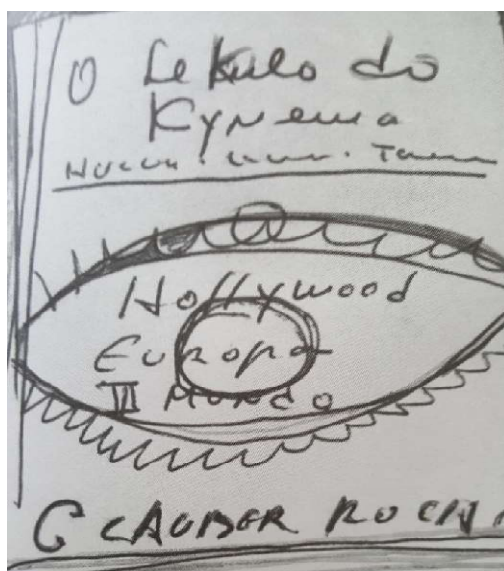 O Sekulo do
Kynema
Hollywood
Europa
III Mundo
GLAUBER ROCHA